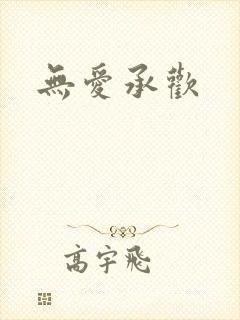 無愛承歡
高宇飛